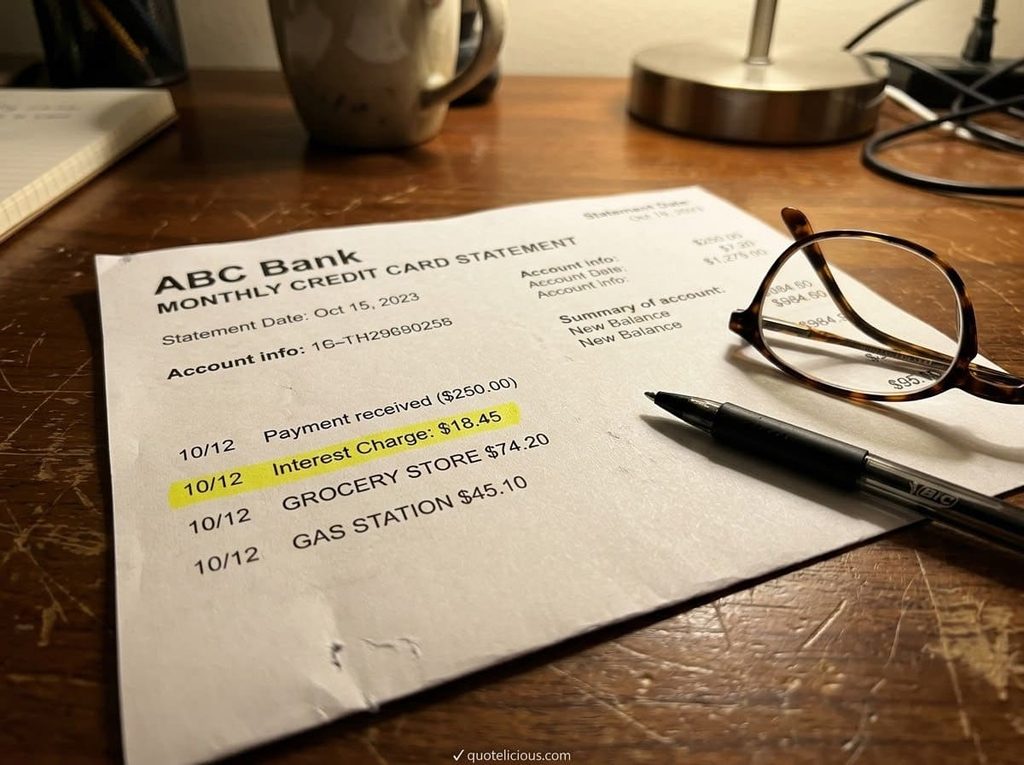 ABC Bank
MONTHLY CREDIT CARD STATEMENT
Statement Date: Oct 15, 2023
Account info: 16–TH29690258
10/12 Payment received ($250.00)
10/12 Interest Charge: $18.45
10/12 GROCERY STORE $74.20
10/12 GAS STATION $45.10
Statement Date:
Account info:
Account Date:
Account info:
$250.00
$7.20
$1,279.00
Summary of account:
New Balance
New Balance
$984.60
BIC
✓ quotelicious.com